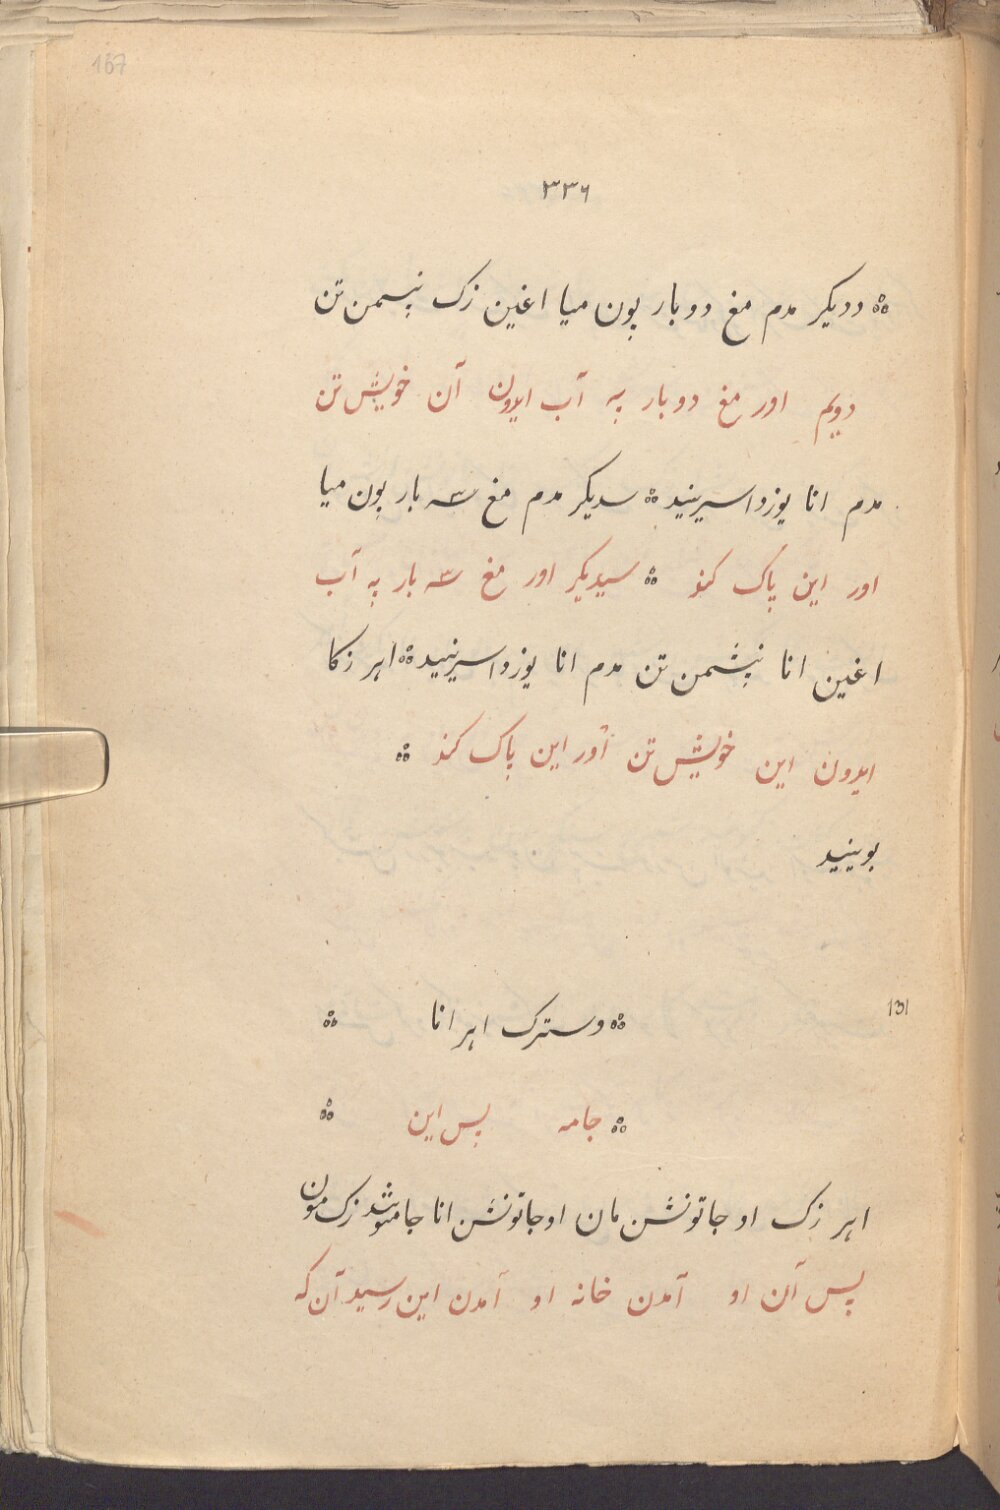 167
۳۳۶
ددیکر مدم مغ دو بار پون میا اغین زک نپسمن تن
دویم اور مغ دو بار به آب ایدون آن خویش تن
مدم انا یوزداسرینید ܀ سدیکر مدم مغ سه بار پون میا
اور این پاک کند ܀ سیدیکر اور مغ سه بار به آب
اغین انا نپشمن تن مدم انا یوزداسرینید ܀ اهر زکا
ایدون این خویش تن اور این پاک کند ܀
بوینید
131
܀ وسترک اهر انا ܀
܀ جامه پس این ܀
اهر زک او جاتونشن مان او جاتونشن انا زک مون
پس آن او آمدن خانه او آمدن این رسید آن که